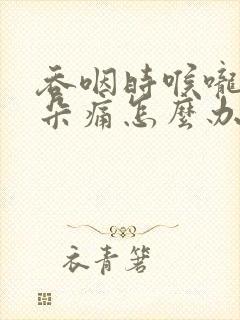 吞咽時喉嚨
朵痛怎麼办
衣青箬